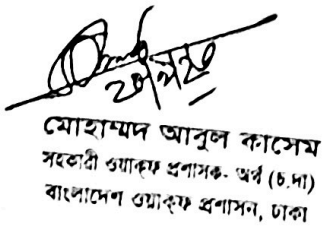 মোহাম্মদ আবুল কাসেম
সহকারী ওয়াক্‌ফ প্রশাসক- অর্থ (চ.দা)
বাংলাদেশ ওয়াক্‌ফ প্রশাসন, ঢাকা